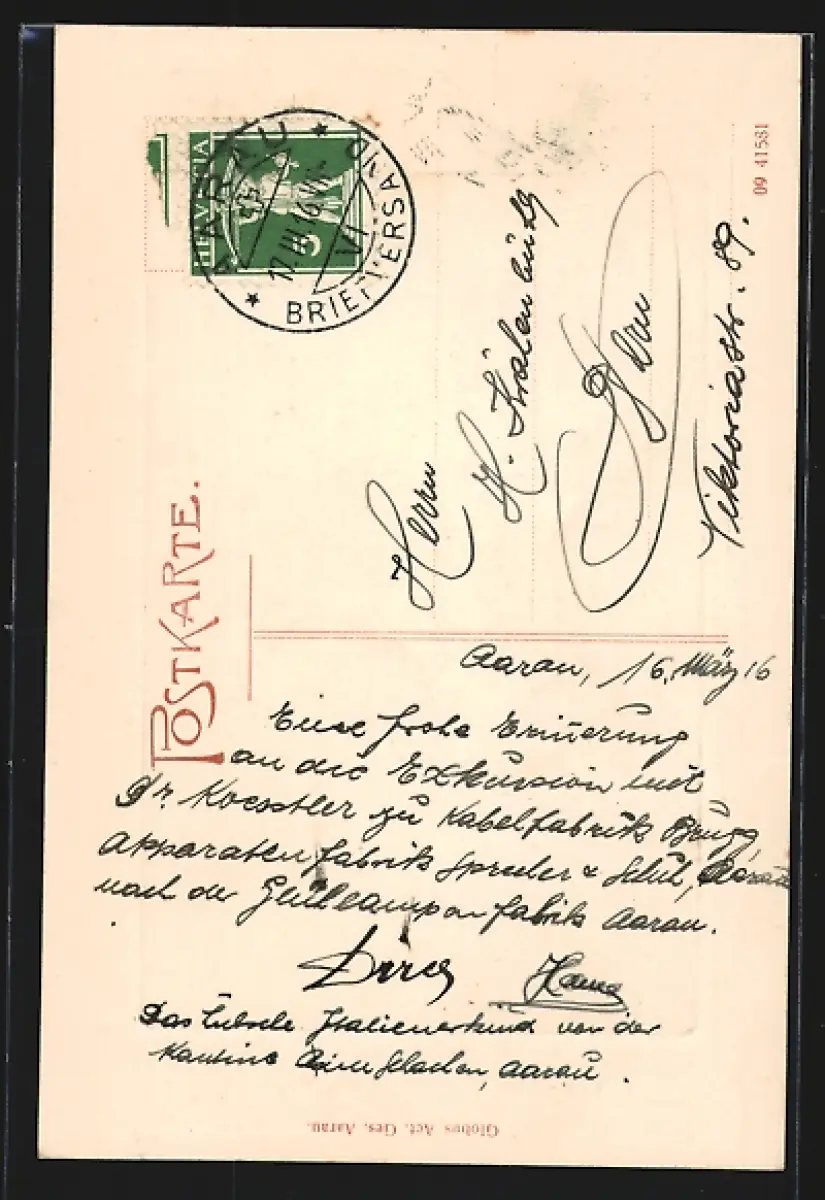 POSTKARTE.
HELVETIA
5
AARAU
17.III.16
VI
BRIEFVERSAND
09 41581
Herrn
H.
Bern
Viktoriastr. 89.
Aarau, 16. März 16
Eine frohe Erinnerung
an die Exkursion mit
Dr. Koestler zu Kabelfabrik Brugg,
Apparatenfabrik Sprecher & Schuh, Aarau
nach der Glühlampenfabrik Aarau.
Hans
Das hübsche Italienerkind von der
Kantine Schachen, Aarau.
Globus Act. Ges. Aarau.